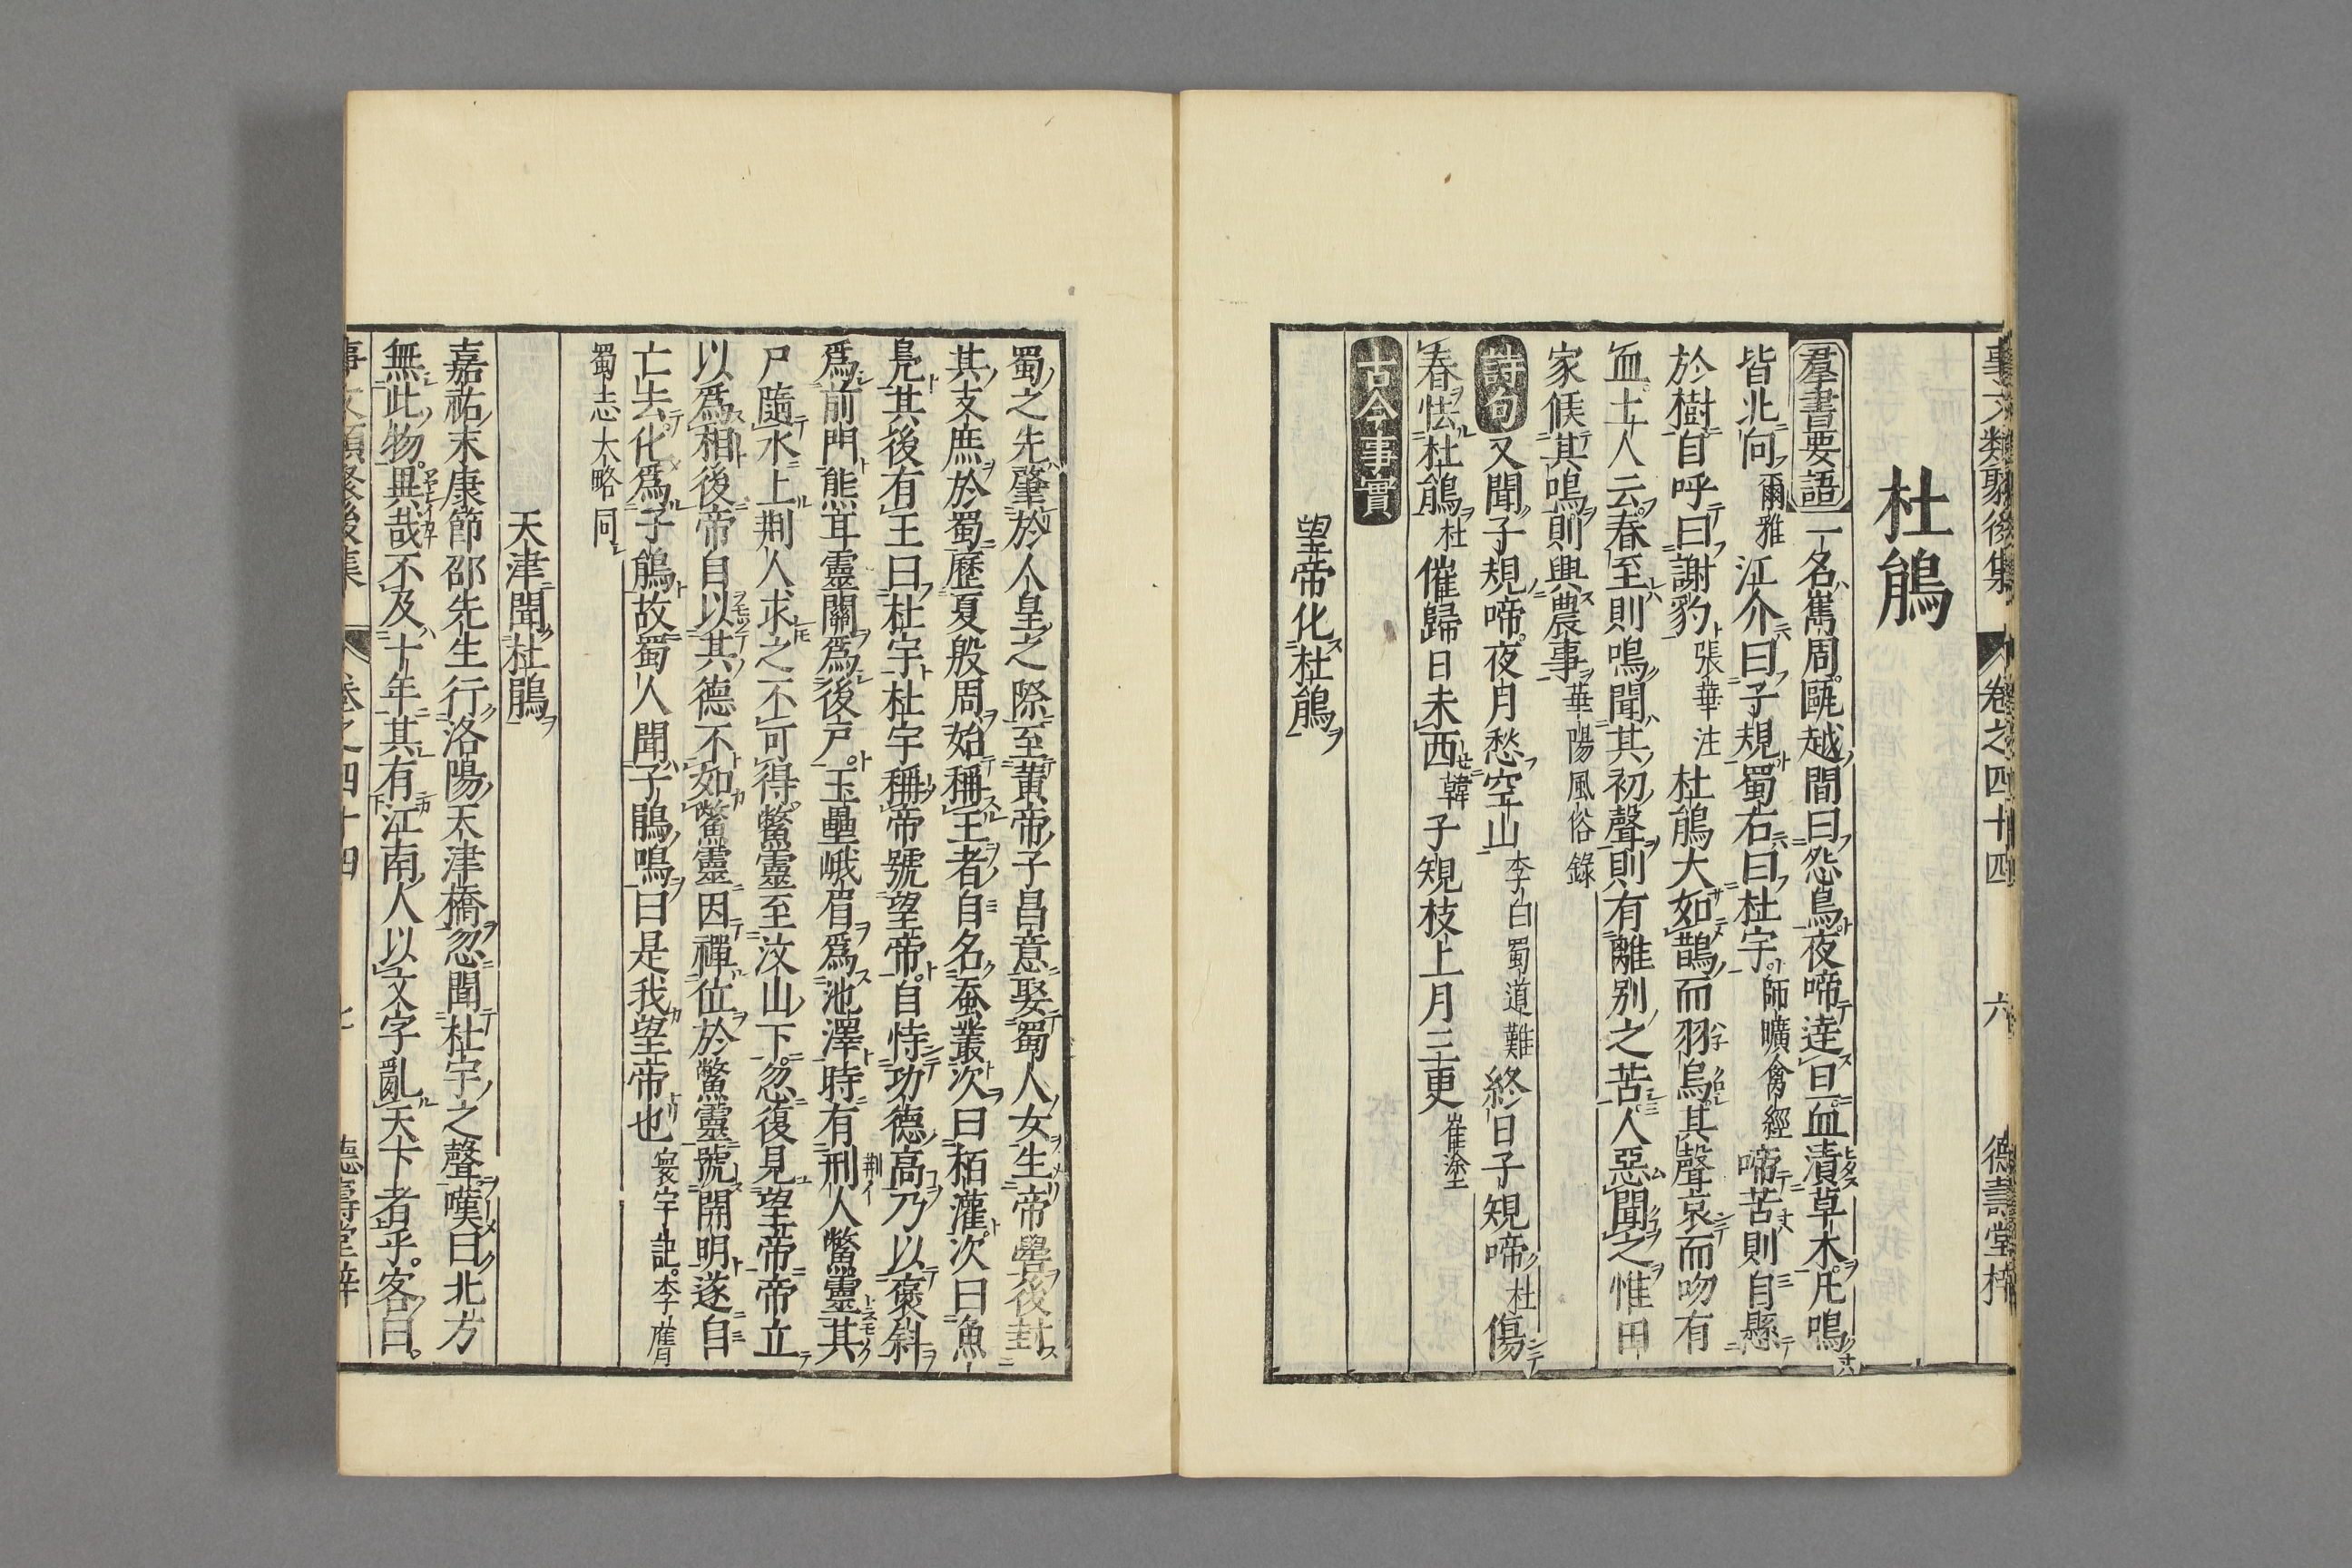 事文類聚後集 卷之四十四 六 德壽堂梓
杜鵑
羣書要語 一名嶲周甌越間曰怨鳥夜啼達旦血漬草木凡鳴
皆北向爾雅江介曰子規蜀右曰杜宇師曠禽經啼苦則自懸
於樹自呼曰謝豹張華注杜鵑大如鵲而羽烏其聲哀而吻有
血土人云春至則鳴聞其初聲則有離別之苦人惡聞之惟田
家候其鳴則興農事華陽風俗錄
詩句 又聞子規啼夜月愁空山李白蜀道難終日子規啼杜傷
春怯杜鵑杜催歸日未西韓子規枝上月三更崔塗
古今事實
望帝化杜鵑
蜀之先肇於人皇之際至黃帝子昌意娶蜀人女生帝嚳後封
其支庶於蜀歷夏殷周始稱王者自名蚕叢次曰栢灌次曰魚
鳧其後有王曰杜宇杜宇稱帝號望帝自恃功德高乃以褒斜
爲前門熊耳靈關爲後戶玉壘峨眉爲池澤時有刑人鱉靈其
尸隨水上荆人求之不可得鱉靈至汶山下忽復見望帝帝立
以爲相後帝自以其德不如鱉靈因禪位於鱉靈號開明遂自
亡去化爲子鵑故蜀人聞子鵑鳴曰是我望帝也寰宇記李膺
蜀志大略同
天津聞杜鵑
嘉祐末康節邵先生行洛陽天津橋忽聞杜宇之聲嘆曰北方
無此物異哉不及十年其有江南人以文字亂天下者乎客曰
事文類聚後集 卷之四十四 七 德壽堂梓